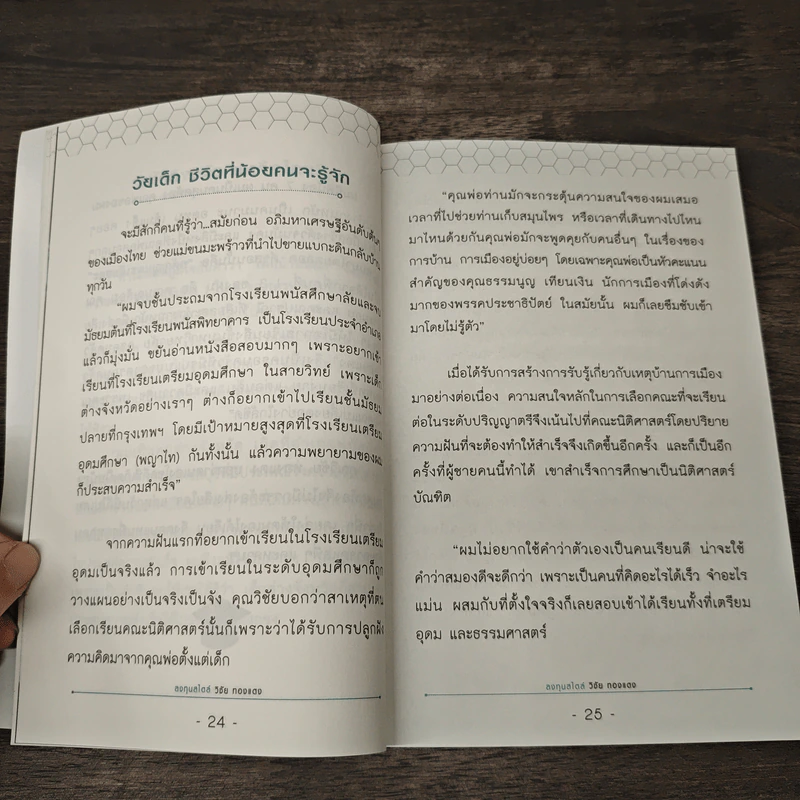 วัยเด็ก ชีวิตที่น้อยคนจะรู้จัก
จะมีสักกี่คนที่รู้ว่า...สมัยก่อน อภิมหาเศรษฐีอันดับต้นๆ
ของเมืองไทย ช่วยแม่ขนมะพร้าวที่นำไปขายแบกะดินกลับบ้าน
ทุกวัน
“ผมจบชั้นประถมจากโรงเรียนพนัสศึกษาลัยและจบ
มัธยมต้นที่โรงเรียนพนัสพิทยาคาร เป็นโรงเรียนประจำอำเภอ
แล้วก็มุ่งมั่น ขยันอ่านหนังสือสอบมากๆ เพราะอยากเข้า
เรียนที่โรงเรียนเตรียมอุดมศึกษา ในสายวิทย์ เพราะเด็ก
ต่างจังหวัดอย่างเราๆ ต่างก็อยากเข้าไปเรียนชั้นมัธยม
ปลายที่กรุงเทพฯ โดยมีเป้าหมายสูงสุดที่โรงเรียนเตรียม
อุดมศึกษา (พญาไท) กันทั้งนั้น แล้วความพยายามของผม
ก็ประสบความสำเร็จ”
จากความฝันแรกที่อยากเข้าเรียนในโรงเรียนเตรียม
อุดมเป็นจริงแล้ว การเข้าเรียนในระดับอุดมศึกษาก็ถูก
วางแผนอย่างเป็นจริงเป็นจัง คุณวิชัยบอกว่าสาเหตุที่ตน
เลือกเรียนคณะนิติศาสตร์นั้นก็เพราะว่าได้รับการปลูกฝัง
ความคิดมาจากคุณพ่อตั้งแต่เด็ก
ลงทุนสไตล์ วิชัย ทองแตง
- 24 -
“คุณพ่อท่านมักจะกระตุ้นความสนใจของผมเสมอ
เวลาที่ไปช่วยท่านเก็บสมุนไพร หรือเวลาที่เดินทางไปไหน
มาไหนด้วยกันคุณพ่อมักจะพูดคุยกับคนอื่นๆ ในเรื่องของ
การบ้าน การเมืองอยู่บ่อยๆ โดยเฉพาะคุณพ่อเป็นหัวคะแนน
สำคัญของคุณธรรมนูญ เทียนเงิน นักการเมืองที่โด่งดัง
มากของพรรคประชาธิปัตย์ ในสมัยนั้น ผมก็เลยซึมซับเข้า
มาโดยไม่รู้ตัว”
เมื่อได้รับการสร้างการรับรู้เกี่ยวกับเหตุบ้านการเมือง
มาอย่างต่อเนื่อง ความสนใจหลักในการเลือกคณะที่จะเรียน
ต่อในระดับปริญญาตรีจึงเน้นไปที่คณะนิติศาสตร์โดยปริยาย
ความฝันที่จะต้องทำให้สำเร็จจึงเกิดขึ้นอีกครั้ง และก็เป็นอีก
ครั้งที่ผู้ชายคนนี้ทำได้ เขาสำเร็จการศึกษาเป็นนิติศาสตร์
บัณฑิต
“ผมไม่อยากใช้คำว่าตัวเองเป็นคนเรียนดี น่าจะใช้
คำว่าสมองดีจะดีกว่า เพราะเป็นคนที่คิดอะไรได้เร็ว จำอะไร
แม่น ผสมกับที่ตั้งใจจริงก็เลยสอบเข้าได้เรียนทั้งที่เตรียม
อุดม และธรรมศาสตร์
ลงทุนสไตล์ วิชัย ทองแตง
- 25 -